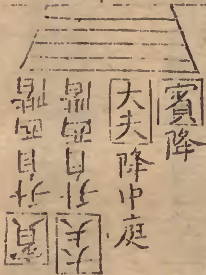 賓降
大夫降中庭
大夫升自西階
賓升自西階